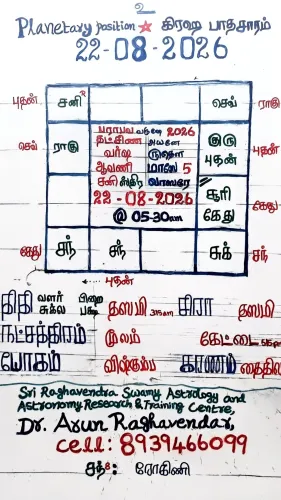 2
Planetary position ★ கிரஹ பாதசாரம்
22-08-2026
புதன் சனி R செவ் ராகு
பராபவ வருடம் 2026
செவ் ராகு தட்சிண குரு புதன் புதன்
வர்ஷ ருதௌ
ஆவணி மாஸே 5
சனி ஸ்திர வாஸரே சூரி
22-08-2026 கேது கேது
@ 05-30am
கேது சந் சுக் சந்
புதன்
திதி வளர் பிறை தஸமி கிரா தஸமி
சுக்ல பக்ஷ
நட்சத்திரம் மூலம் கேட்டை
யோகம் விஷ்கம்ப கரணம் தைதில
Sri Raghavendra Swamy Astrology and
Astronomy Research & Training Centre,
Dr. Arun Raghavendar,
Cell: 8939466099
சந் 8: ரோகிணி